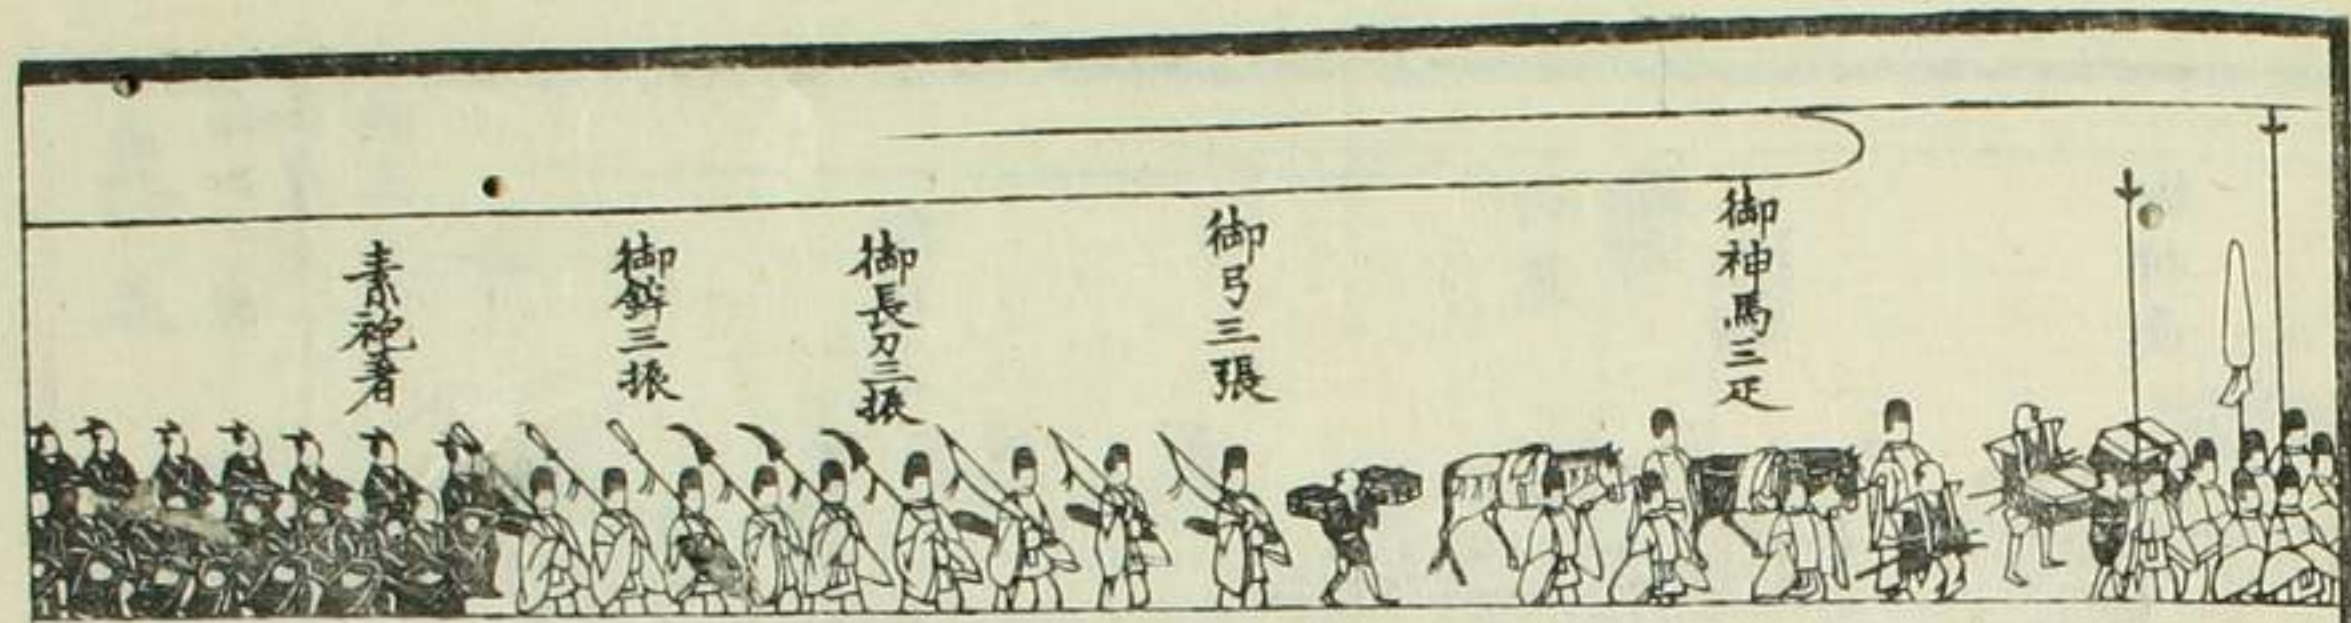 御神馬三疋
御弓三張
御長刀三振
御鉾三振
素袍着